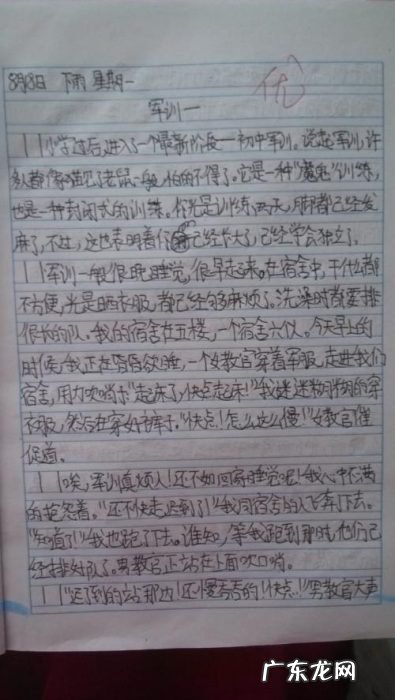 优
8月8日 下雨 星期一
军训一
小学过后，进入了一个最新阶段—初中军训。说起军训，许
多人都像猫见了老鼠一般，怕的不得了。它是一种"魔鬼"训练，
也是一种封闭式的训练。你光是训练两天，脚都已经发
麻了，不过，这也表明着你已经长大了，已经学会独立了。
军训一般很晚睡觉，很早起来。在宿舍中，干什么都
不方便，光是晒衣服，都已经够麻烦了。洗澡时都要排
很长的队。我的宿舍在五楼，一个宿舍六似。今天早上的
时候，我正在昏昏欲睡，一个女教官穿着军服，走进我们
宿舍，用力吹哨卡"起来了，快点起来！"我迷迷糊糊的穿
衣服，然后在穿好裤子。"快点！怎么这么慢！"女教官催
促道。
"唉，军训真烦人！还不如回家睡觉呢！"我心中不满
的抱怨着。"还不快走，迟到了！"我同宿舍的人飞奔下去。
"知道了！"我也跑了下去。谁知，等我跑到那时，他们已
经排好队了。男教官正站在上面吹口哨。
"迟到的站那边！还慢吞吞的！快点！"男教官大声
广东龙网
WWW.GDDFL.CN